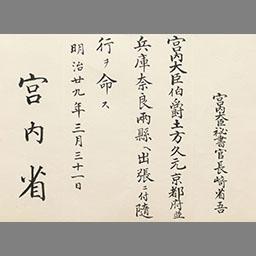 宮内大臣秘書官長崎省吾
宮内大臣伯爵土方久元京都府並
兵庫奈良兩縣ヘ出張ニ付隨
行ヲ命ス
明治廿九年三月三十一日
宮内省